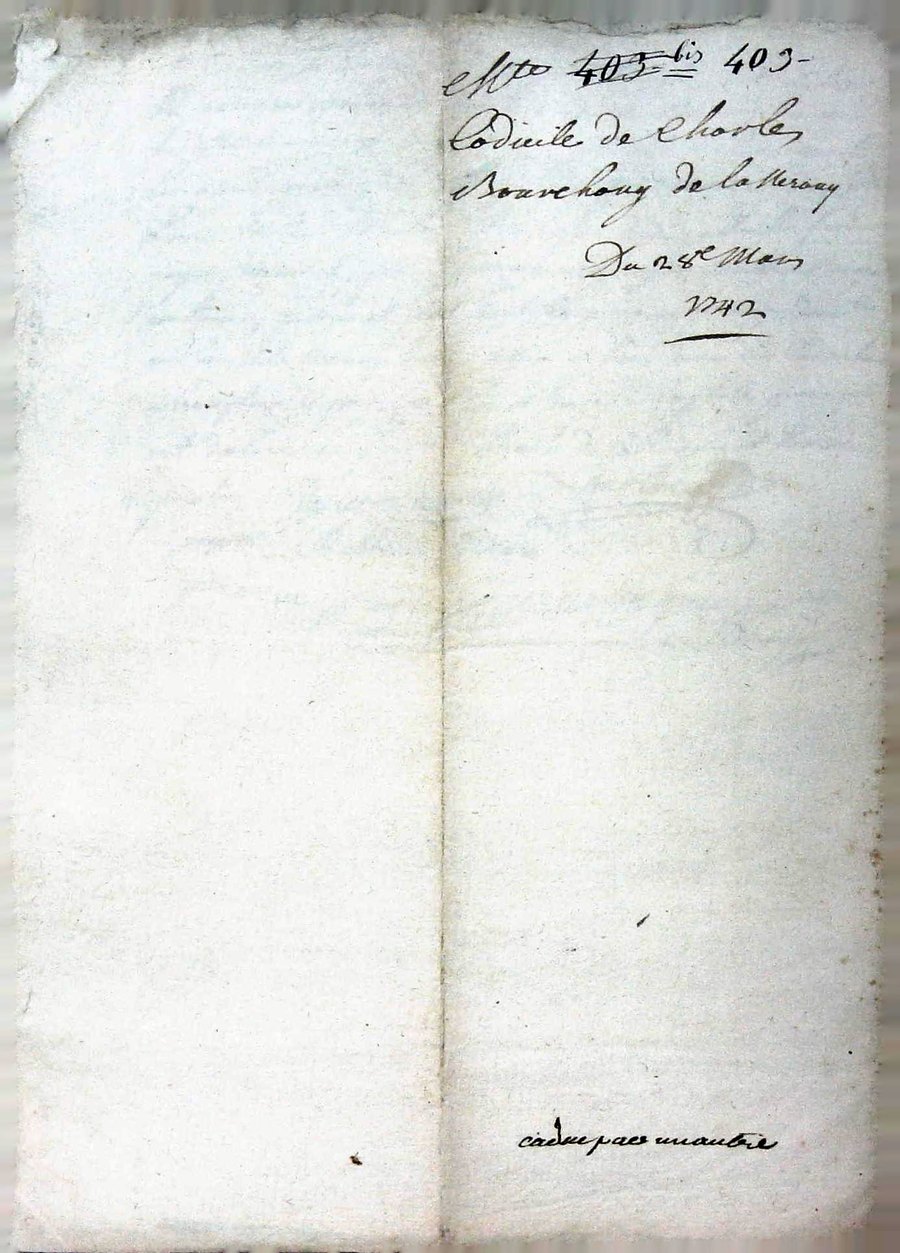 Mte 403 bis 403-
Codicile de Charles
Bourchany de la
Du 28e Mars
1742
caduc par un autre